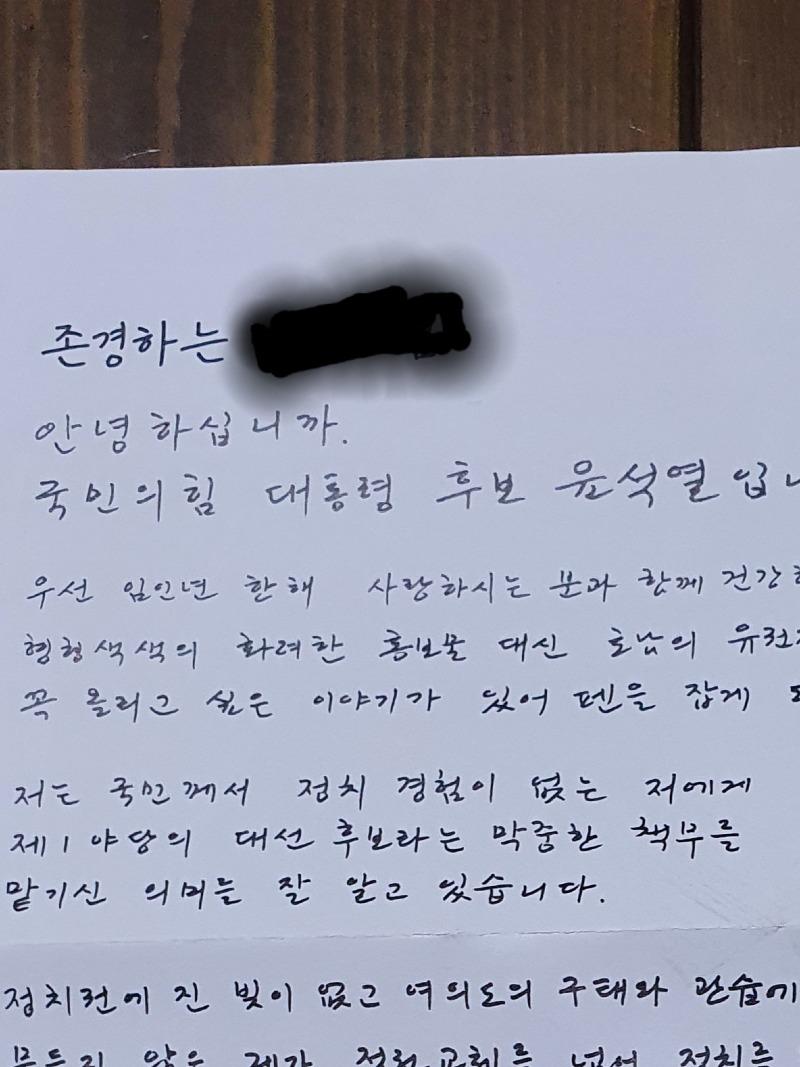 존경하는
안녕하십니까.
국민의힘 대통령 후보 윤석열입니
우선 임인년 한해 사랑하시는 분과 함께 건강하
형형색색의 화려한 홍보물 대신 호남의 유권자
꼭 올리고 싶은 이야기가 있어 펜을 잡게
저는 국민께서 정치 경험이 없는 저에게
제1야당의 대선 후보라는 막중한 책무를
맡기신 의미를 잘 알고 있습니다.
정치권에 진 빚이 없고 여의도의 구태와 관습에
물들지 않은 제가 정권교체를 넘어 정치를